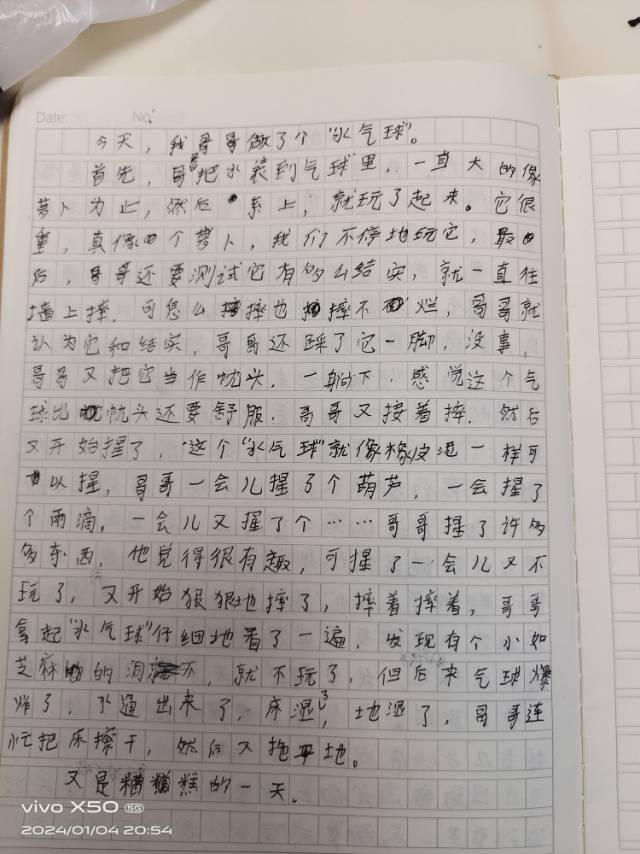 Date: No
今天，我哥哥做了个“水气球”。
首先，哥哥把水装到气球里，一直大的像
萝卜为止，然后系上，就玩了起来。它很
重，真像个萝卜，我们不停地玩它，最
后，哥哥还要测试它有多么结实，就一直往
墙上摔，可怎么摔也摔不烂，哥哥就
认为它和结实，哥哥还踩了它一脚，没事，
哥哥又把它当作枕头，一躺下，感觉这个气
球比枕头还要舒服，哥哥又接着摔，然后
又开始捏了，这个“水气球”就像橡皮泥一样可
以捏，哥哥一会儿捏了个葫芦，一会捏了
个雨滴，一会儿又捏了个……哥哥捏了许多
多东西，他觉得很有趣，可捏了一会儿又不
玩了，又开始狠狠地摔了，摔着摔着，哥哥
拿起“水气球”仔细地看了一遍，发现有个小如
芝麻的洞，就不玩了，但后来气球爆
炸了，水通出来了，床湿了，地湿了，哥哥连
忙把床擦干，然后又拖地。
又是糟糕的一天。
vivo X50 5G
2024/01/04 20:54